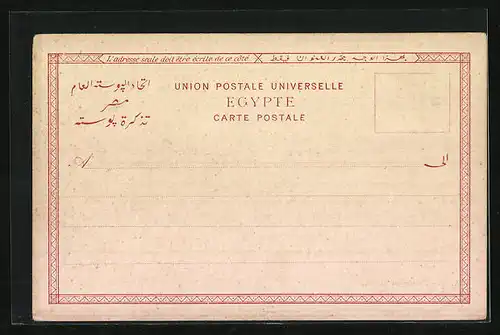 L'adresse seule doit être écrite de ce côté
اتحاد البوسته العام
مصر
تذكرة بوسته
UNION POSTALE UNIVERSELLE
EGYPTE
CARTE POSTALE
A
الى